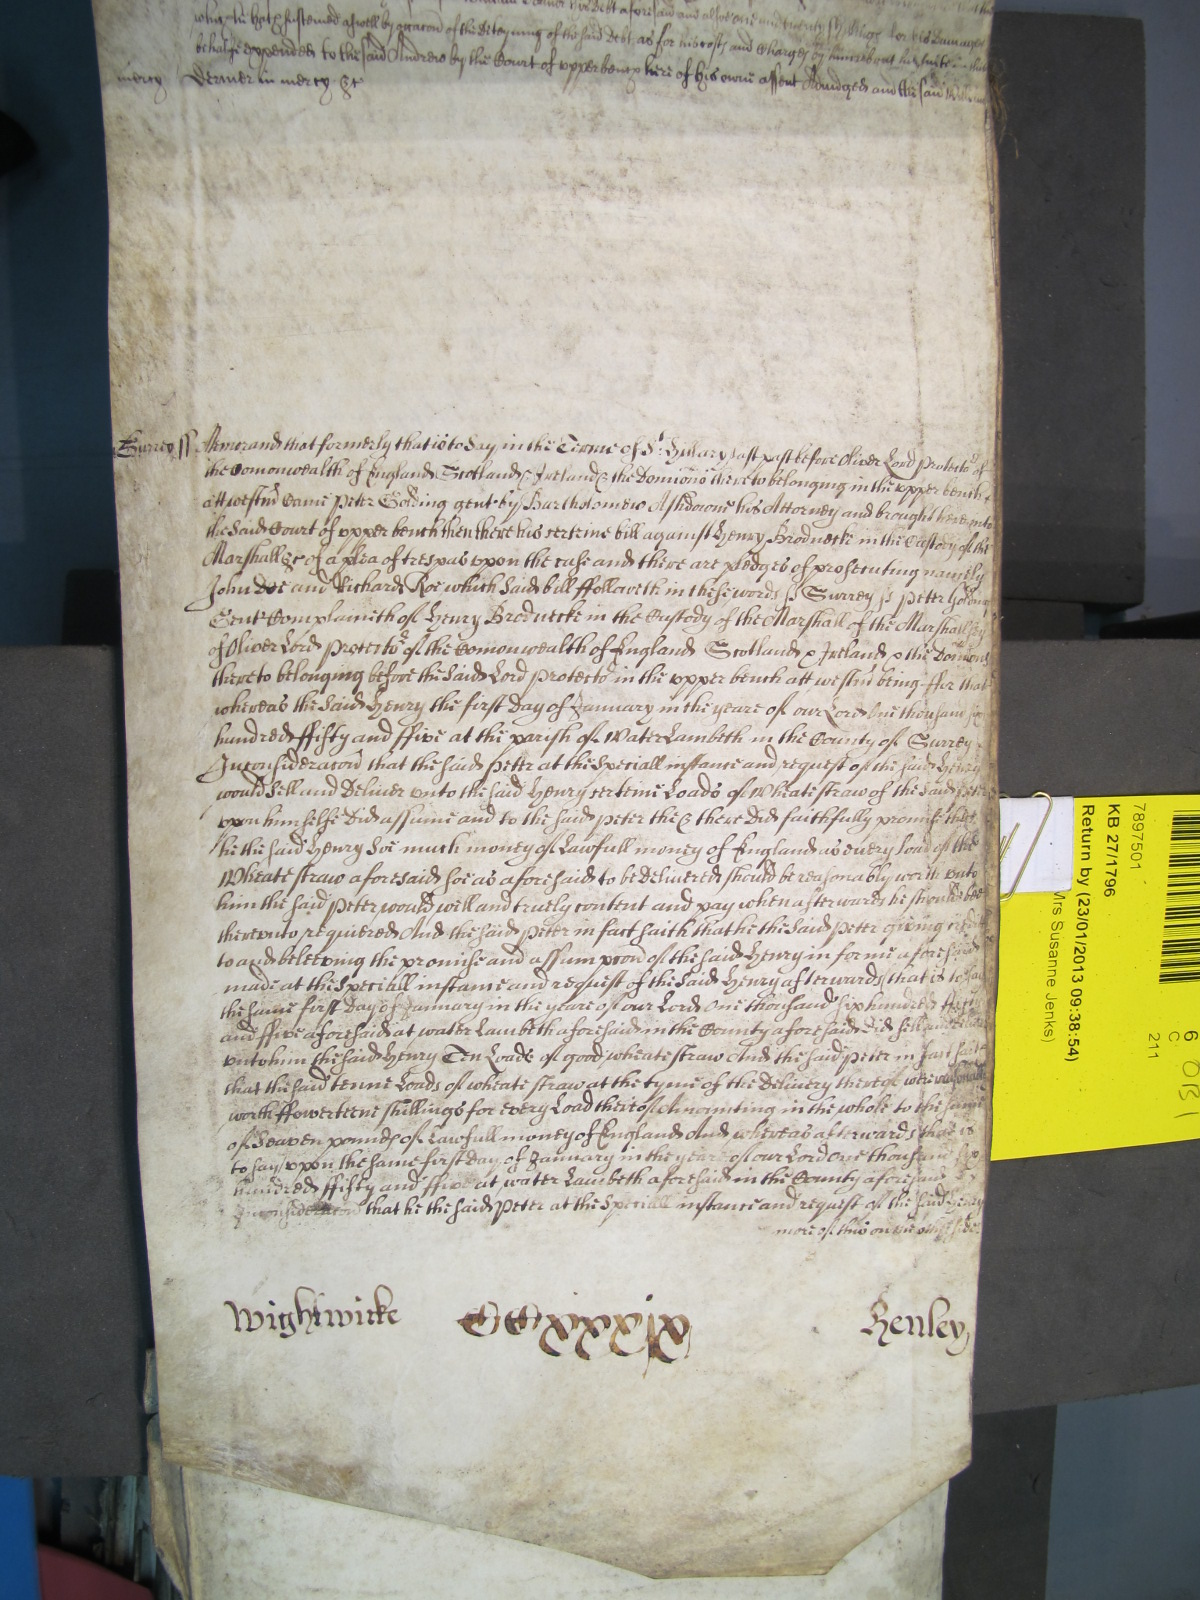 which he hath susteined aswell by occacon of the deteyning of the said debt as for his costs and Charges by him about his suite in that
behalfe expended to the said Andrew by the Court of upper bench here of his owne assent Adiudged and the said William
mercy Dermer in mercy &c
Surrey ss Memorand that formerly that is to Say in the Terme of St. Hillary last past before Oliver Lord Protector of
the Comonwealth of England Scotland & Ireland & the Dominions thereto belonging in the upper bench
att westmr Came Peter Golding gent by Bartholomew Ashdowne his Attorney and brought here into
the Said Court of upper bench then there his certeine bill against Henry Brodnecke in the Custody of the
Marshall &c of a plea of trespas upon the case and there are pledges of prosecuting namely
John Doe and Richard Roe which Said bill ffolloweth in these words ss Surrey ss Peter Golding
Gent Complaineth of Henry Brodnecke in the Custody of the Marshall of the Marshallsey
of Oliver Lord Protector of the Comonwealth of England Scotland & Ireland & the Dominions
thereto belonging before the Said Lord Protector in the upper bench att westmr being ffor that
whereas the Said Henry the first Day of January in the yeare of our Lord One thousand six
hundred ffifty and ffive at the parish of Water Lambeth in the County of Surrey
In consideracon that the Said Peter at the Speciall instance and request of the Said Henry
would Sell and Deliver unto the Said Henry certeine Loads of Wheate straw of the Said Peter
upon himselfe Did assume and to the Said Peter then & there Did faithfully promise that
he the Said Henry Soe much money of Lawfull money of England as every load of the
Wheate straw aforesaid soe as aforesaid to be Delivered should be reasonably worth unto
him the Said Peter would well and truely content and pay when afterwards he should bee
thereunto required And the Said Peter in fact saith that he the Said Peter giving credit
to and beleeving the promise and assumpcon of the Said Henry in forme aforesaid
made at the Speciall instance and request of the Said Henry afterwards that is to say
the same first Day of January in the yeare of our Lord One thousand six hundred ffifty
and ffive aforesaid at water Lambeth aforesaid in the County aforesaid did sell and deliver
unto him the Said Henry Ten Loads of good wheate straw And the Said Peter in fact saith
that the Said tenne Loads of wheate straw at the tyme of the Delivery thereof were reasonably
worth ffowerteene shillings for every Load thereof Amounting in the whole to the summe
of Seaven pounds of Lawfull money of England And whereas afterwards that is
to say upon the same first Day of January in the yeare of our Lord One thousand Six
hundred ffifty and ffive at water Lambeth aforesaid in the County aforesaid
In consideracon that he the Said Peter at the Speciall instance and request of the Said Henry
more of this on the other side
Wightwicke CCxxxix Henley
7897501
KB 27/1796
Return by (23/01/2013 09:38:54)
Mrs Susanne Jenks)
6
C
211